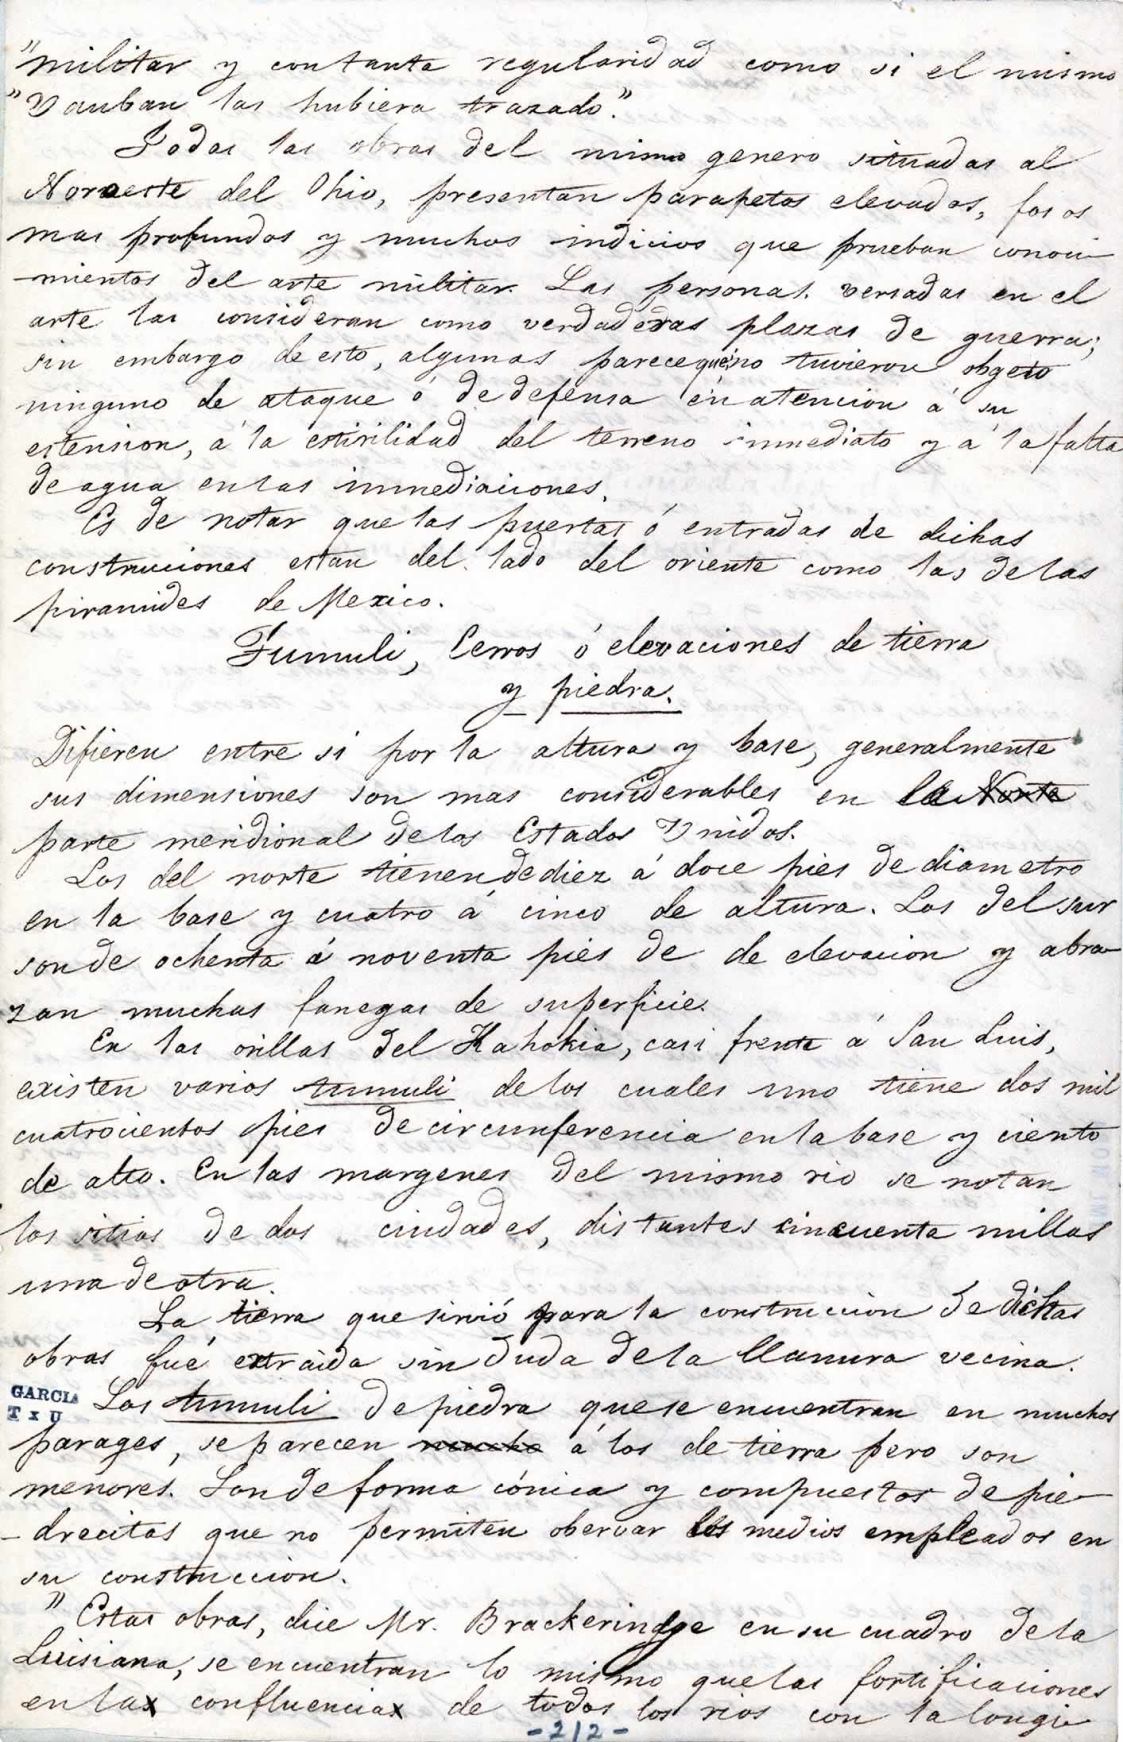 "militar y con tanta regularidad como si el mismo
"Vauban las hubiera trazado".
Todas las obras del mismo genero situadas al
Noroeste del Ohio, presentan parapetos elevados, fosos
mas profundos y muchos indicios que prueban conoci-
-mientos del arte militar. Las personas versadas en el
arte las consideran como verdaderas plazas de guerra;
sin embargo de esto, algunas parece que no tuvieron obgeto
ninguno de ataque ó de defensa en atencion á su
estension, á la estirilidad del terreno inmediato y á la falta
de agua en las inmediaciones.
Es de notar que las puertas ó entradas de dichas
construciones estan del lado del oriente como las de las
piramides de Mexico.
Tumuli, Cerros ó elevaciones de tierra
y piedra.
Difieren entre si por la altura y base, generalmente
sus dimensiones son mas considerables en la Norte
parte meridional de los Estados Unidos.
Los del norte tienen de diez á doce pies de diametro
en la base y cuatro á cinco de altura. Los del sur
son de ochenta á noventa pies de de elevacion y abra-
zan muchas fanegas de superficie.
En las orillas del Kahokia, casi frente á San Luis,
existen varios tumuli de los cuales uno tiene dos mil
cuatrocientos pies de circunferencia en la base y ciento
de alto. En las margenes del mismo rio se notan
los sitios de dos ciudades, distantes cincuenta millas
una de otra.
La tierra que sirvió para la construccion de dichas
obras fué extraida sin duda de la llanura vecina.
GARCIA
T x U
Los tumuli de piedra que se encuentran en muchos
parages, se parecen mucho á los de tierra pero son
menores. Son de forma cónica y compuestos de pie-
-drecitas que no permiten obervar los medios empleados en
su construccion.
"Estas obras, dice Mr. Brackeringge en su cuadro de la
Luisiana, se encuentran lo mismo que las fortificaciones
en la confluencia de todos los rios con la longi-
-212-